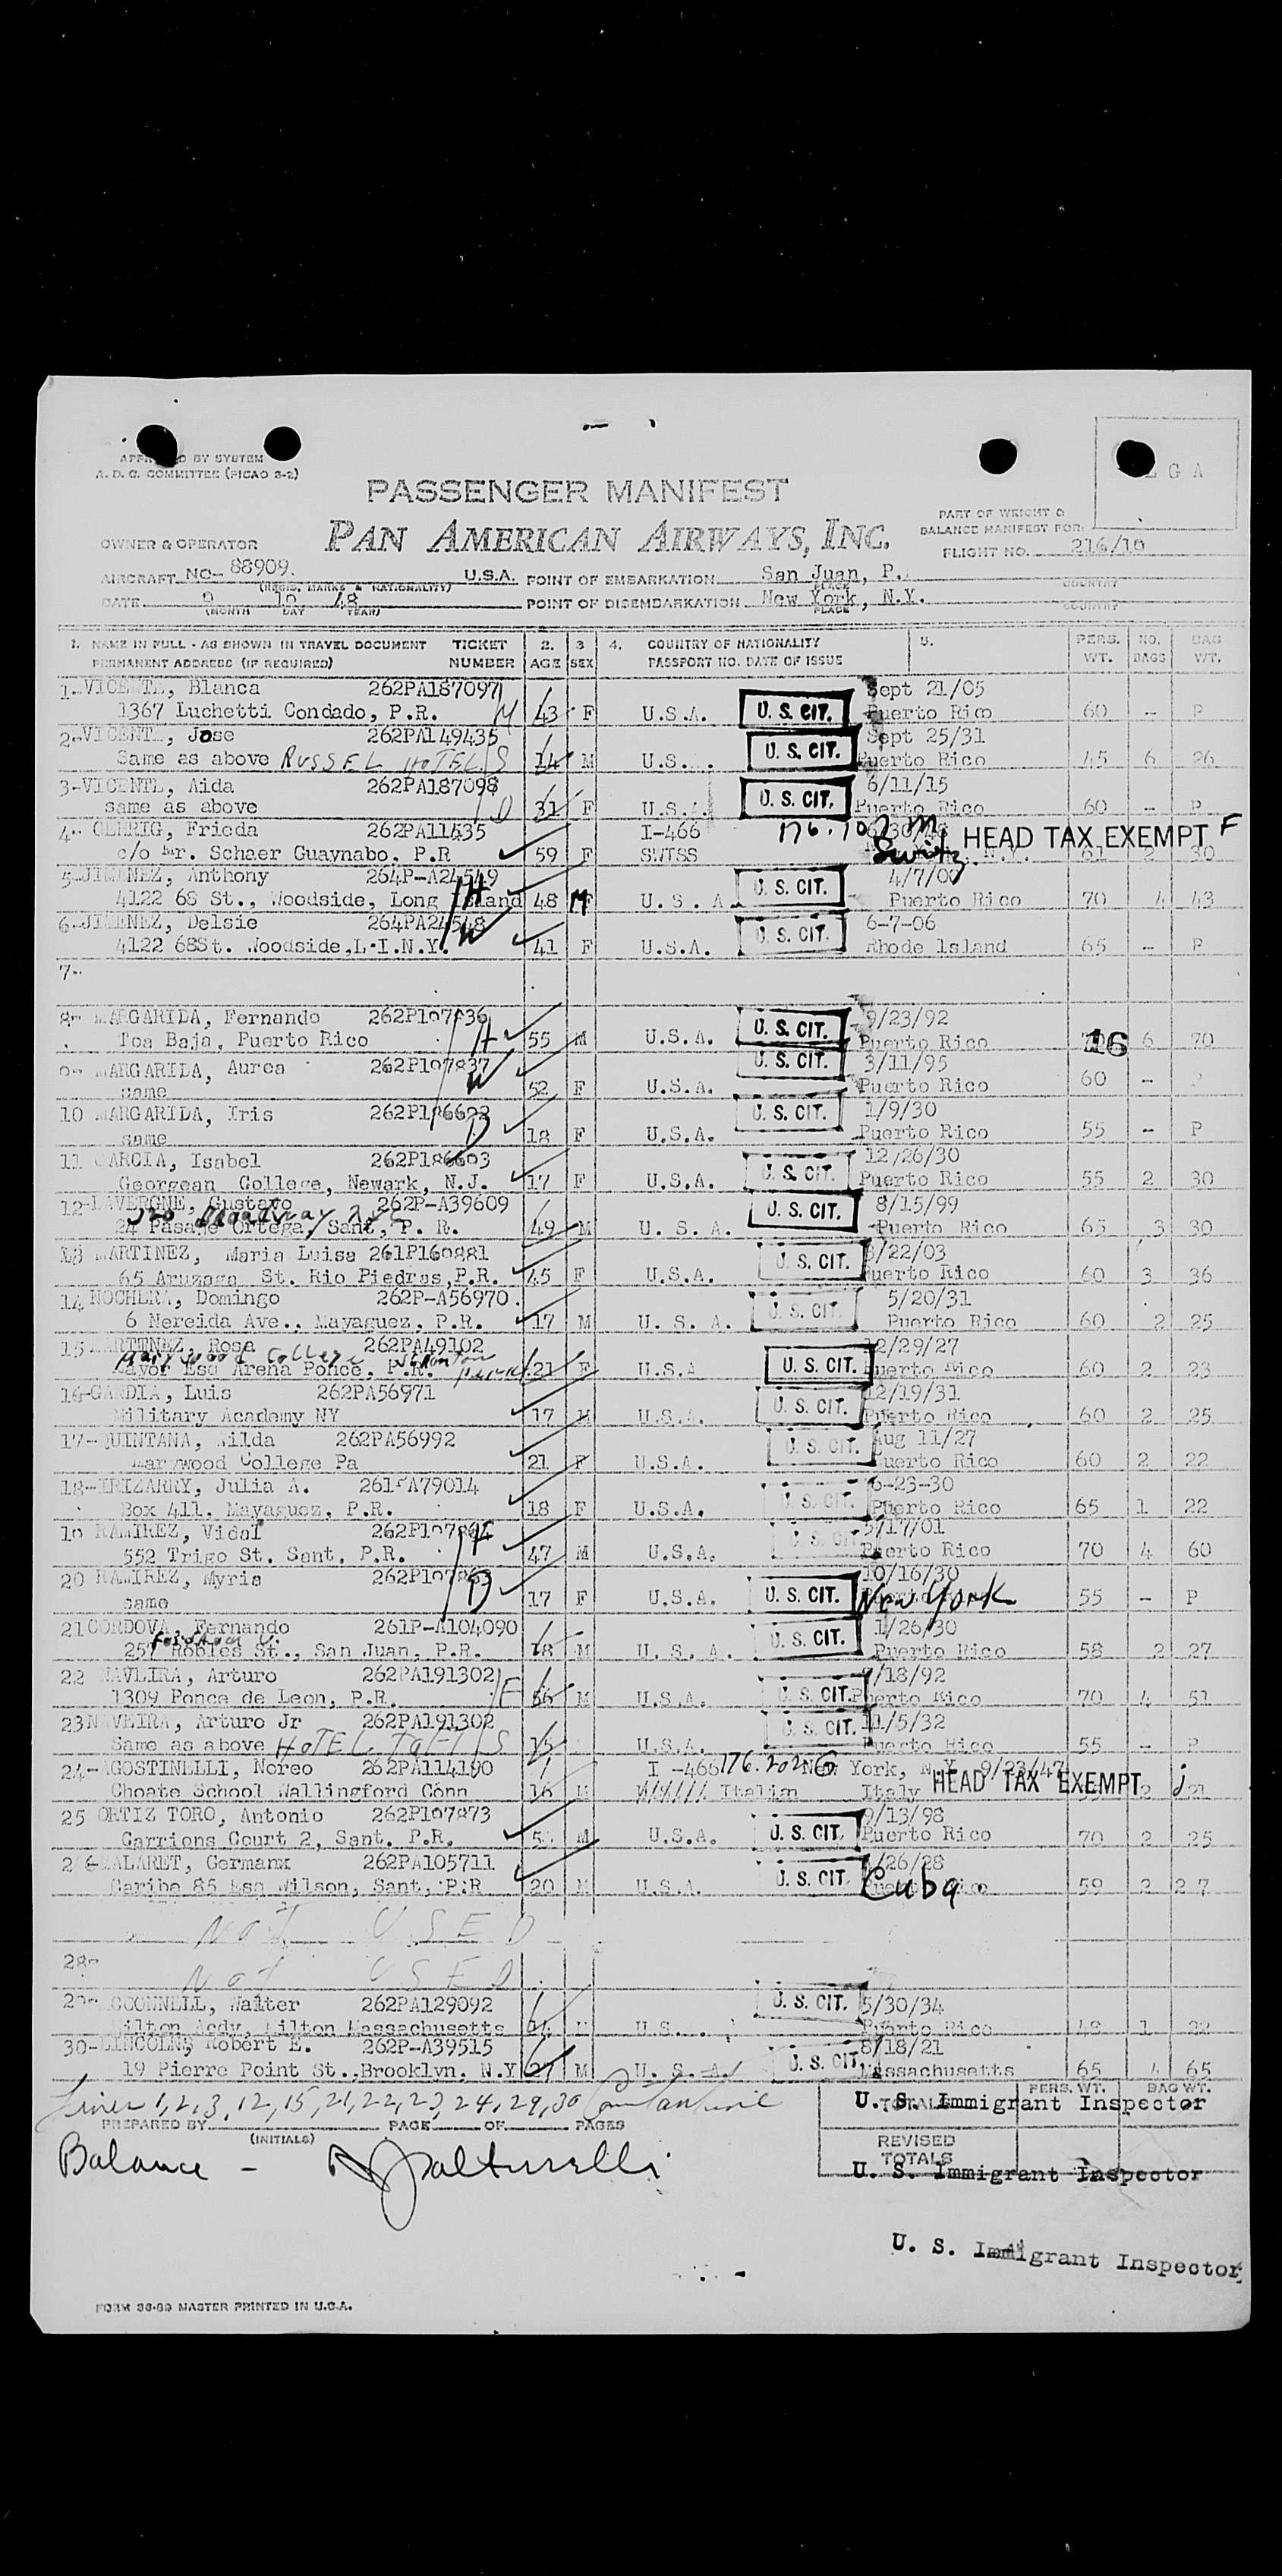 BY SYSTEM
A. D. C. COMMITTEE (PICAO 2-2)
L G A
PASSENGER MANIFEST
PART OF WEIGHT &
BALANCE MANIFEST FOR:
PAN AMERICAN AIRWAYS, INC.
FLIGHT NO. 216/10
OWNER & OPERATOR
AIRCRAFT NC- 88909. U.S.A. POINT OF EMBARKATION San Juan, P.
(REGIS. MARKS & NATIONALITY) PLACE COUNTRY
DATE 9 10 48 POINT OF DISEMBARKATION New York, N.Y.
(MONTH DAY YEAR) PLACE COUNTRY
1. NAME IN FULL - AS SHOWN IN TRAVEL DOCUMENT TICKET 2. 3 4. COUNTRY OF NATIONALITY 5. PERS. NO. BAG
PERMANENT ADDRESS (IF REQUIRED) NUMBER AGE SEX PASSPORT NO. DATE OF ISSUE WT. BAGS WT.
1- VICENTE, Blanca 262PA187097 Sept 21/05
1367 Luchetti Condado, P.R. M 43 F U.S.A. U. S. CIT. Puerto Rico 60 - P
2- VICENTE, Jose 262PA149435 Sept 25/31
Same as above RUSSEL HOTEL S 14 M U.S. U. S. CIT. Puerto Rico 45 6 26
3-VICENTE, Aida 262PA187098 6/11/15
same as above D 31 F U.S.A. U. S. CIT. Puerto Rico 60 - P
4- Frieda 262PA11435 I-466 HEAD TAX EXEMPT F
c/o Mr. Schaer Guaynabo, P.R 59 F SWISS Switz. N.Y. 61 2 30
5-JIMENEZ, Anthony 264P-A24549 4/7/00
4122 68 St., Woodside, Long Island H 48 M U. S. A U. S. CIT. Puerto Rico 70 4 43
6-JIMENEZ, Delsie 264PA24548 6-7-06
4122 68St. Woodside,L.I.N.Y. W 41 F U.S.A. U. S. CIT. Rhode Island 65 - P
7-
8- MARGARIDA, Fernando 262P107836 9/23/92
Toa Baja, Puerto Rico H 55 M U.S.A. U. S. CIT. Puerto Rico 16 6 70
9- MARGARIDA, Aurea 262P107837 3/11/95
same W 52 F U.S.A. U. S. CIT. Puerto Rico 60 - P
10 MARGARIDA, Iris 262P186692 1/9/30
same D 18 F U.S.A. U. S. CIT. Puerto Rico 55 - P
11 GARCIA, Isabel 262P186693 12/26/30
Georgean College, Newark, N.J. 17 F U.S.A. U. S. CIT. Puerto Rico 55 2 30
12-LAVERGNE, Gustavo 262P-A39609 8/15/99
Broadway NYC
24 Pasaje Ortega, Sant, P. R. 49 M U. S. A. U. S. CIT. Puerto Rico 65 3 30
13 MARTINEZ, Maria Luisa 261P160881 /22/03
65 Aruzaga St. Rio Piedras,P.R. 45 F U.S.A. U. S. CIT. Puerto Rico 60 3 36
14 NOCHERA, Domingo 262P-A56970. 5/20/31
6 Nereida Ave., Mayaguez, P.R. 17 M U. S. A. U. S. CIT. Puerto Rico 60 2 25
15 MARTINEZ, Rosa 262PA49102 12/29/27
Marywood College Scranton
Mayor Esq Arena Ponce, P.R. 21 F U.S.A U. S. CIT. Puerto Rico 60 2 23
16-GANDIA, Luis 262PA56971 12/19/31
Military Academy NY 17 M U.S.A. U. S. CIT. Puerto Rico 60 2 25
17-QUINTANA, Wilda 262PA56992 Aug 11/27
Marywood College Pa 21 F U.S.A. U. S. CIT. Puerto Rico 60 2 22
18-IRIZARRY, Julia A. 261PA79014 6-23-30
Box 411, Mayaguez, P.R. 18 F U.S.A. U. S. CIT. Puerto Rico 65 1 22
19 RAMIREZ, Vidal 5/17/01
552 Trigo St. Sant, P.R. F 47 M U.S.A. U. S. CIT. Puerto Rico 70 4 60
20 RAMIREZ, Myris 262P107863 10/16/30
same D 17 F U.S.A. U. S. CIT. New York 55 - P
21 CORDOVA, Fernando 261P-A104090 1/26/30
Fordham U.
257 Robles St., San Juan, P.R. 18 M U. S. A. U. S. CIT. Puerto Rico 58 2 27
22 NAVEIRA, Arturo 262PA191302 /18/92
1309 Ponce de Leon, P.R. F 56 M U.S.A. U. S. CIT. Puerto Rico 70 4 51
23 NAVEIRA, Arturo Jr 262PA191302 11/5/32
Same as above HOTEL TAFT S 15 U.S.A. U. S. CIT. Puerto Rico 55 - P
24-AGOSTINELLI, Noreo 262PA114190 I -466 New York, N.Y. 9/23/47
Choate School Wallingford Conn 16 M Italian Italy HEAD TAX EXEMPT 2 21
25 ORTIZ TORO, Antonio 262P107873 9/13/98
Carrions Court 2, Sant. P.R. M U.S.A. U. S. CIT. Puerto Rico 70 2 25
26-MALARET, Germanx 262PA105711 /26/28
Caribe 85 Esq Wilson, Sant, P.R 20 M U.S.A. U. S. CIT. Cuba 59 2 27
NOT USED
28-
NOT USED
29- CCONNELL, Walter 262PA129092 5/30/34
Milton Acdy, Milton Massachusetts 14 M U.S. U. S. CIT. Puerto Rico 48 1 32
30-LINCOLN, Robert E. 262P-A39515 8/18/21
19 Pierre Point St..Brooklyn, N.Y 27 M U. S. A. U. S. CIT. Massachusetts 65 4 65
Lines 1, 2, 3, 12, 15, 21, 22, 23, 24, 29, 30
PREPARED BY PAGE OF PAGES
(INITIALS)
PERS. WT. BAG WT.
TOTALS
U. S. Immigrant Inspector
Balance -
REVISED
TOTALS
U. S. Immigrant Inspector
U. S. Immigrant Inspector
FORM 36-89 MASTER PRINTED IN U.S.A.